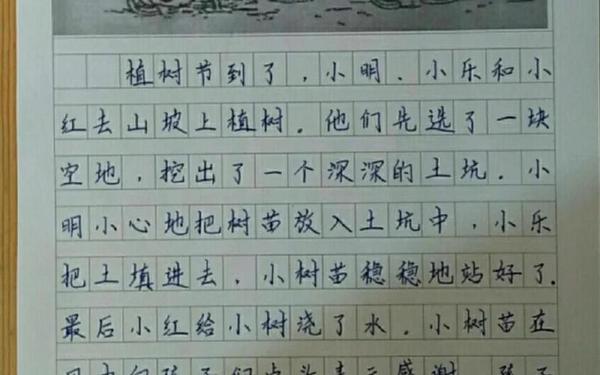 植树节到了，小明、小乐和小
红去山坡上植树。他们先选了一块
空地，挖出了一个深深的土坑。小
明小心地把树苗放入土坑中，小乐
把土填进去，小树苗稳稳地站好了。
最后小红给小树浇了水。小树苗在